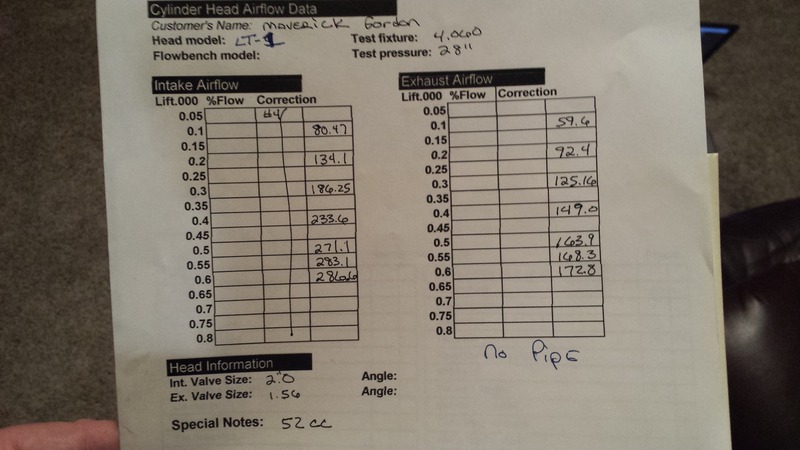 Cylinder Head Airflow Data
Customer's Name: Maverick Gordon
Head model: LT-1 Test fixture: 4.060
Flowbench model: Test pressure: 28"
Intake Airflow
Lift.000 %Flow Correction
0.05 #4
0.1 80.47
0.15
0.2 134.1
0.25
0.3 186.25
0.35
0.4 233.6
0.45
0.5 271.1
0.55 283.1
0.6 286.6
0.65
0.7
0.75
0.8
Exhaust Airflow
Lift.000 %Flow Correction
0.05
0.1 59.6
0.15
0.2 92.4
0.25
0.3 125.16
0.35
0.4 149.0
0.45
0.5 163.9
0.55 168.3
0.6 172.8
0.65
0.7
0.75
0.8
No Pipe
Head Information
Int. Valve Size: 2.0 Angle:
Ex. Valve Size: 1.56 Angle:
Special Notes: 52cc